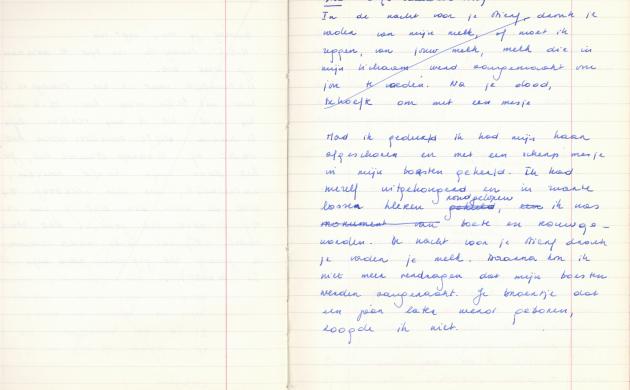 In de nacht voor je stierf, dronk je
vader van mijn melk, of moet ik
zeggen, van jouw melk, melk die in
mijn lichaam werd aangemaakt om
jou te voeden. Na je dood,
behoefte om met een mesje
Had ik gedurfd ik had mijn haar
afgeschoren en met een scherp mesje
in mijn borsten gekerfd. Ik had
mezelf uitgehongerd en in zwarte
lossen kleren rondgelopen gekleed, een ik was
monument van boete en rouw ge-
worden. De nacht voor je stierf dronk
je vader je melk. Daarna kon ik
niet meer verdragen dat mijn borsten
werden aangeraakt. Je broertje dat
een jaar later werd geboren,
zoogde ik niet.